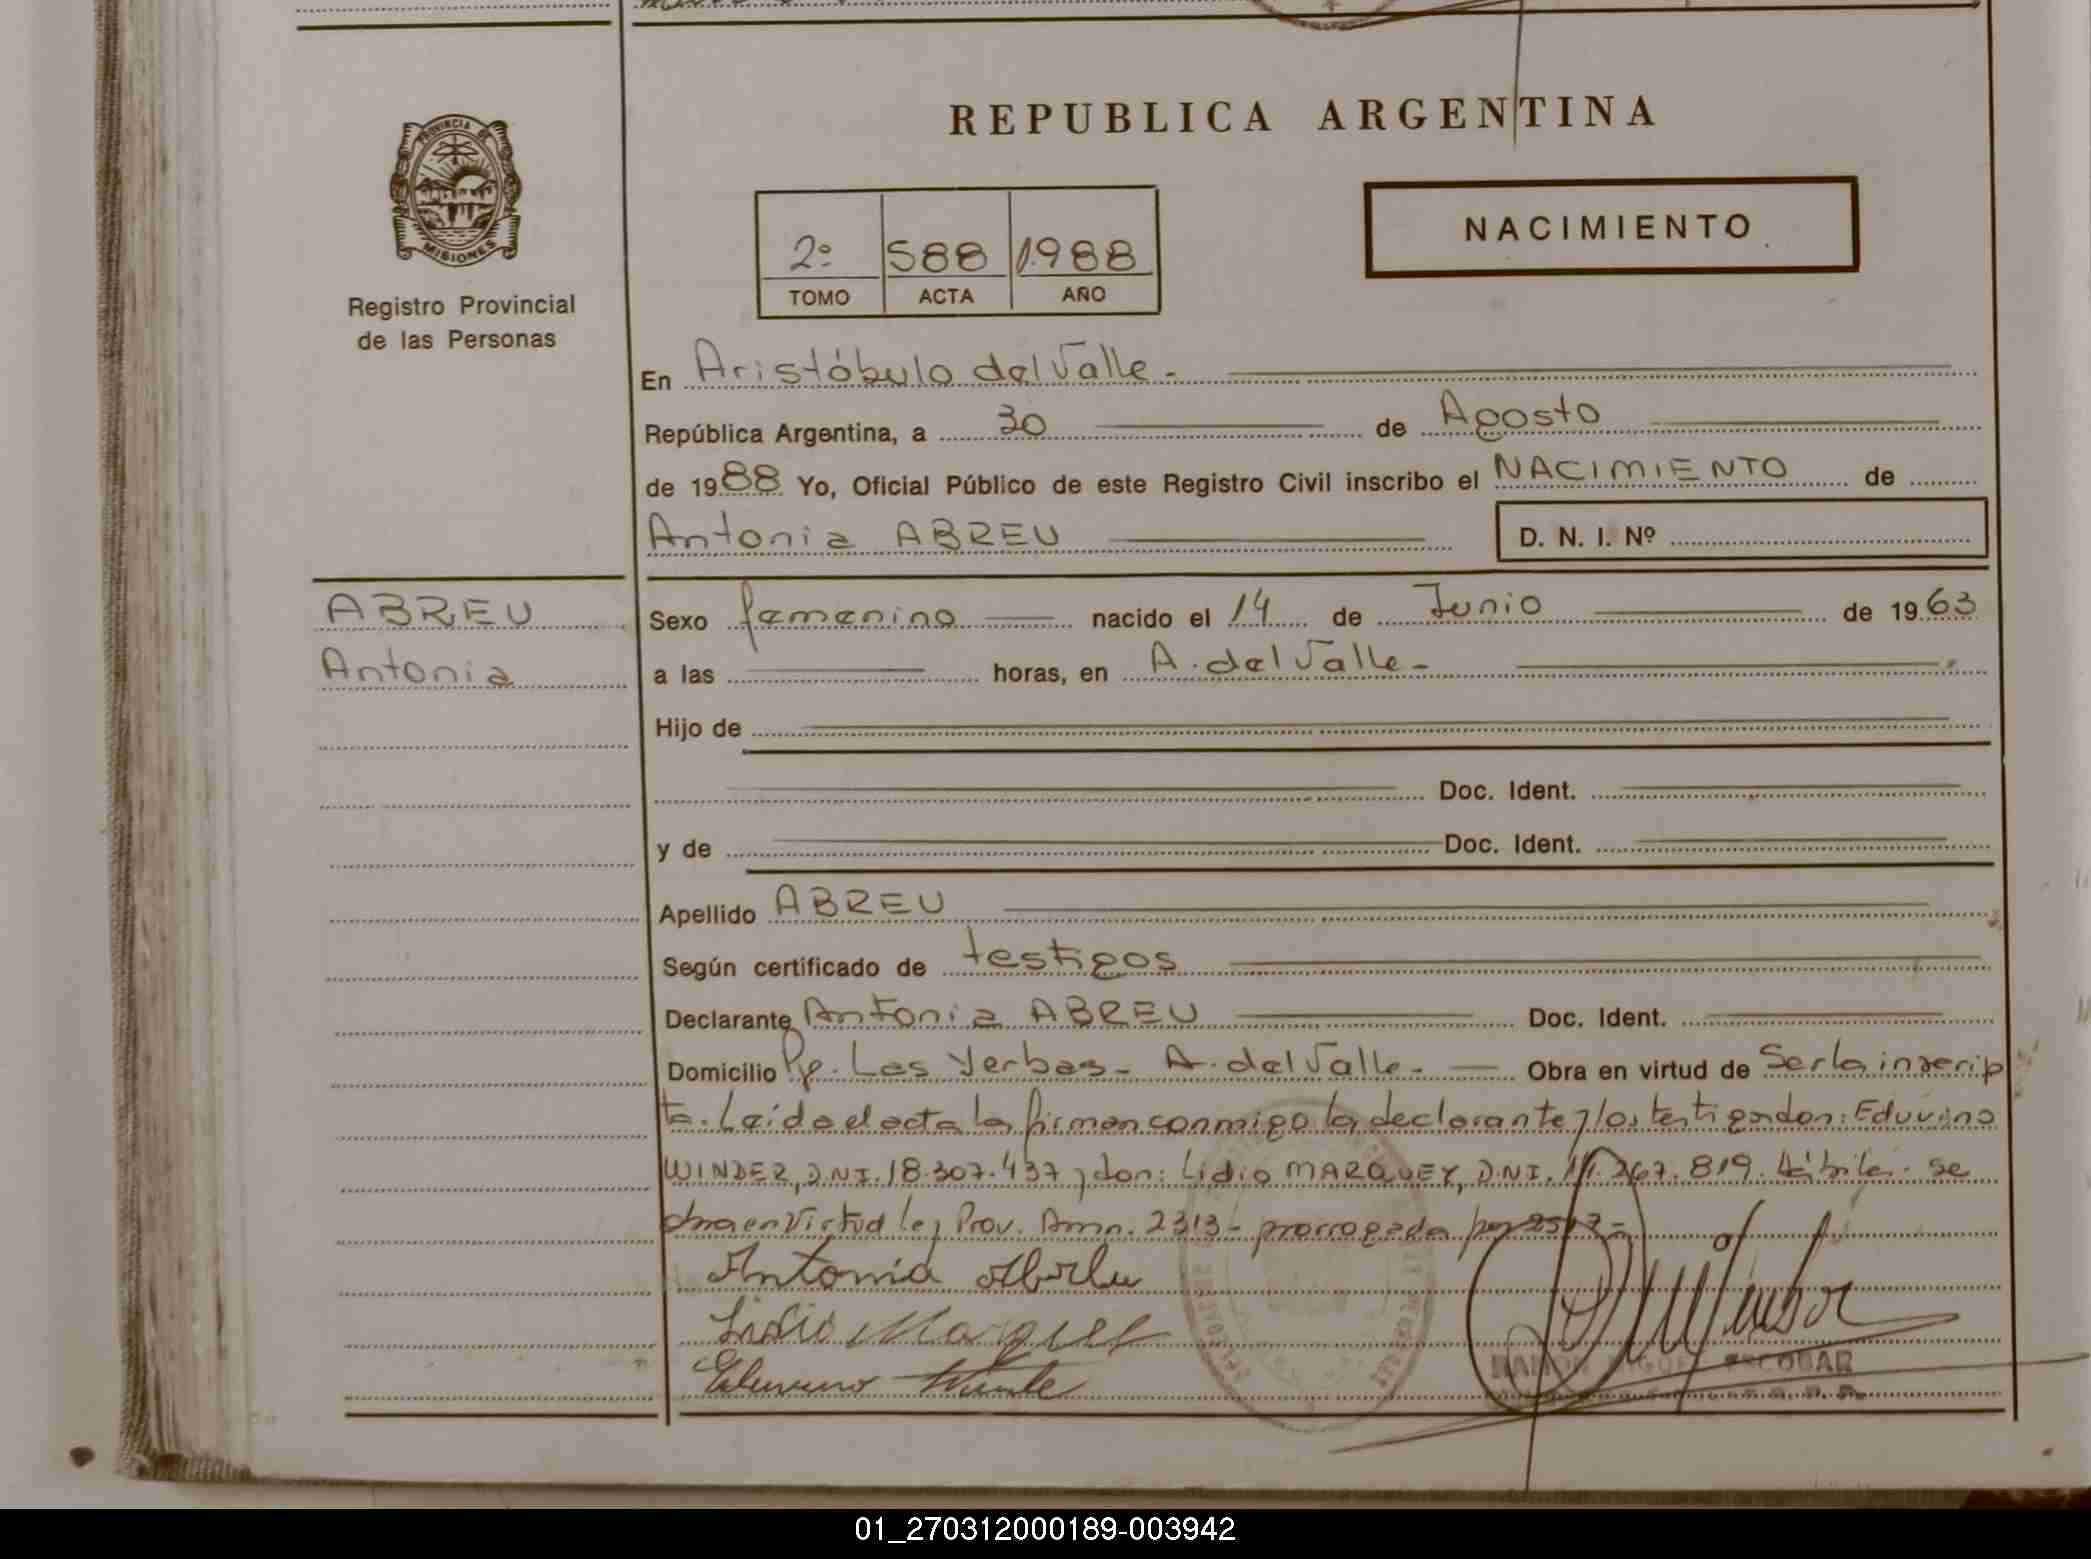 REPUBLICA ARGENTINA
PROVINCIA DE
MISIONES
Registro Provincial
de las Personas
2º 588 1988
TOMO ACTA AÑO
NACIMIENTO
En Aristóbulo del Valle.-
República Argentina, a 30 de Agosto
de 1988 Yo, Oficial Público de este Registro Civil inscribo el NACIMIENTO de
Antonia ABREU D. N. I. Nº
ABREU
Antonia
Sexo femenino nacido el 14 de Junio de 1963
a las horas, en A. del Valle.-
Hijo de
Doc. Ident.
y de Doc. Ident.
Apellido ABREU
Según certificado de testigos
Declarante Antonia ABREU Doc. Ident.
Domicilio Pje. Las Yerbas- A. del Valle.- Obra en virtud de Ser la inscrip
ta. Leída el acta la firman conmigo la declarante y los testigos don: Eduvino
WINDER, D.N.I. 18.307.437 y don: Lidio MARQUEZ, D.N.I. 267.819. Hábiles. Se
obra en Virtud ley Prov. Amn. 2313- prorrogada por
Antonia Abreu
Lidio Marquez
Eduvino
RAMON ESCOBAR
01_270312000189-003942